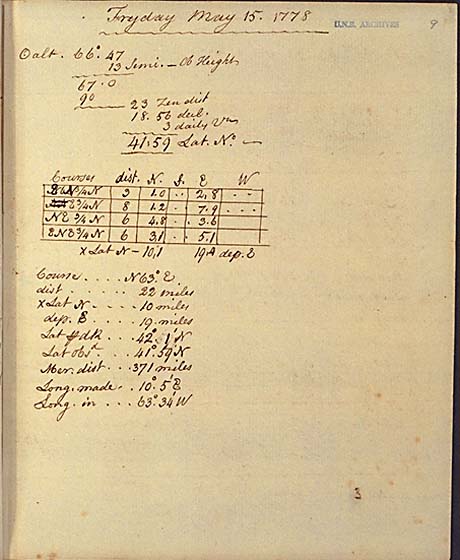 Fryday May 15. 1778
U.N.B. ARCHIVES 9
⊙alt. 66° 47
13 Semi. — Ob Height
67. 0
90
23 Zen dist
18. 56 decl.
3 daily Vn
41.59 Lat. No.
Courses dist. N. S. E W
3/4 N 3 1.0 .. 2.8 . . -
E 3/4 N 8 1.2 .. 7.9 . . . .
NE 3/4 N 6 4.8 .. 3.6
ENE 3/4 N 6 3.1 .. 5.1
x Lat N — 10,1 19.4 dep. E
Course . . . . N 63° E
dist . . . . . . . 22 miles
x Lat N . . . . 10 miles
dep. E . . . . 19 miles
Lat dR . . . 42° 1 N
Lat obs. . . . 41° 59 N
Mer. dist . . . 371 miles
Long. made . . 10° 5' E
Long. in . . . 63° 34 W
3